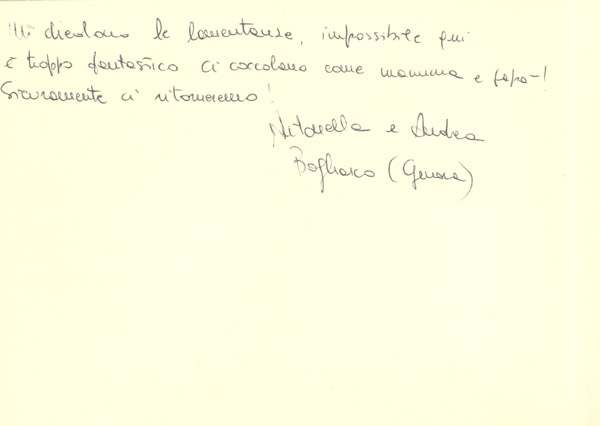 Mi chiedono le lamentanse, impossibile qui
è troppo fantastico ci coccolano come mamma e papà!
Sicuramente ci ritorneremo!
Antonella e Andrea
Bogliasco (Genova)